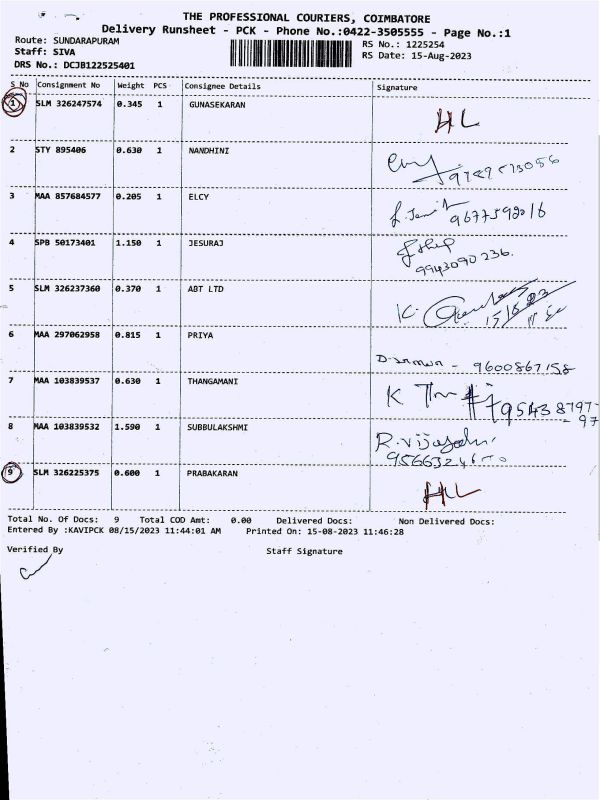 THE PROFESSIONAL COURIERS, COIMBATORE
Delivery Runsheet - PCK - Phone No.:0422-3505555 - Page No.:1
Route: SUNDARAPURAM
RS No.: 1225254
Staff: SIVA
RS Date: 15-Aug-2023
DRS No.: DCJB122525401
S No Consignment No Weight PCS Consignee Details Signature
1 SLM 326247574 0.345 1 GUNASEKARAN
HL
2 STY 895406 0.630 1 NANDHINI
3 MAA 857684577 0.205 1 ELCY
9677592016
4 SPB 50173401 1.150 1 JESURAJ
9943090236.
5 SLM 326237360 0.370 1 ABT LTD
K.
15/8/23
6 MAA 297062958 0.815 1 PRIYA
9600867158
7 MAA 103839537 0.630 1 THANGAMANI
K
8 MAA 103839532 1.590 1 SUBBULAKSHMI
9 SLM 326225375 0.600 1 PRABAKARAN
HL
Total No. Of Docs: 9 Total COD Amt: 0.00 Delivered Docs: Non Delivered Docs:
Entered By :KAVIPCK 08/15/2023 11:44:01 AM Printed On: 15-08-2023 11:46:28
Verified By Staff Signature